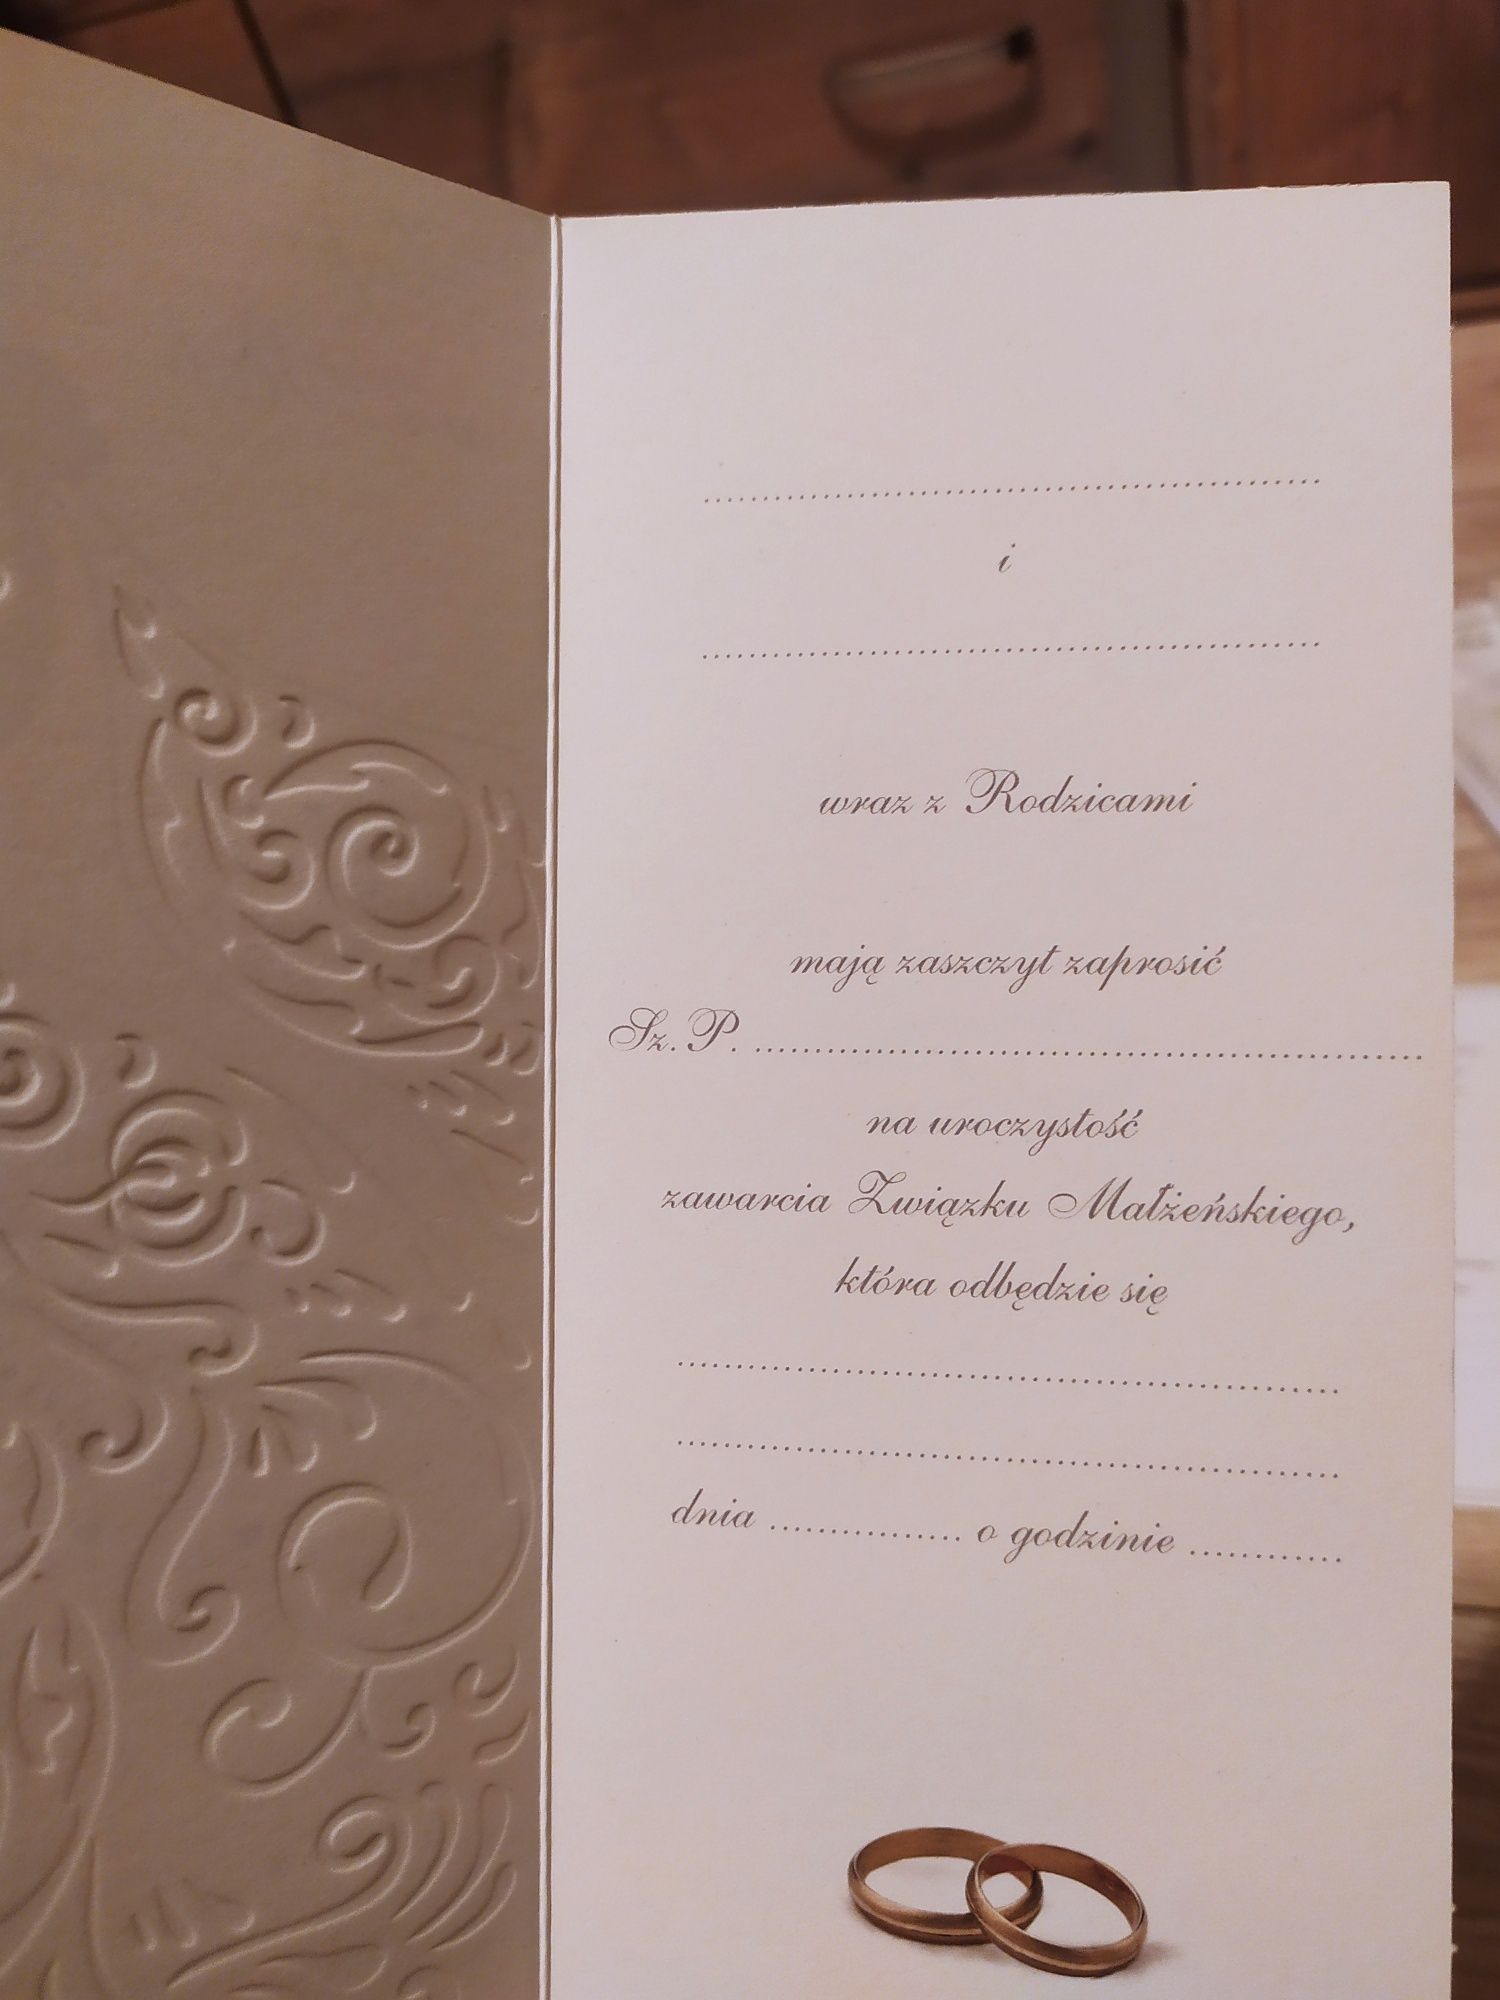 ........................................
i
........................................
wraz z Rodzicami
mają zaszczyt zaprosić
Sz. P. ........................................
na uroczystość
zawarcia Związku Małżeńskiego,
która odbędzie się
........................................
........................................
dnia ................ o godzinie .............